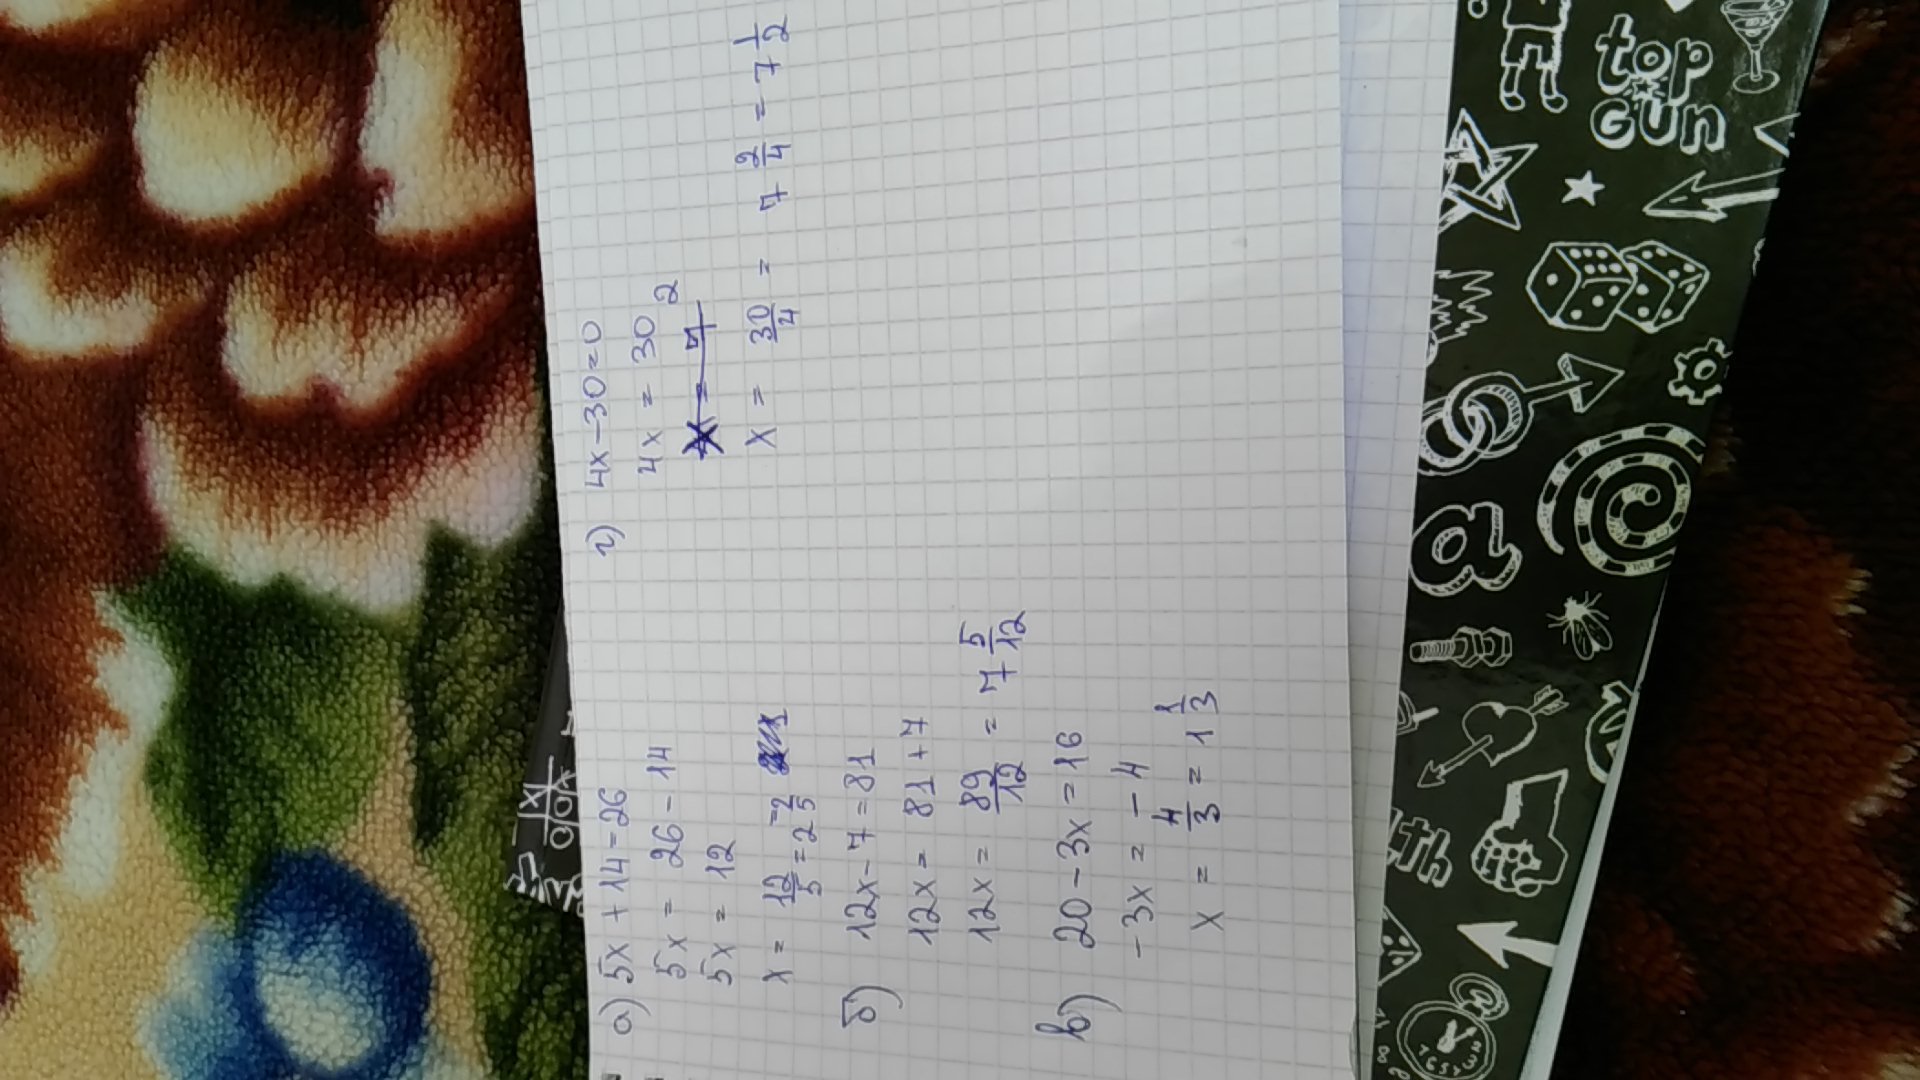 а) 5x + 14 = 26
5x = 26 - 14
5x = 12
x = 12/5 = 2 2/5
б) 12x - 7 = 81
12x = 81 + 7
12x = 89/12 = 7 5/12
в) 20 - 3x = 16
-3x = -4
x = 4/3 = 1 1/3
г) 4x - 30 = 0
4x = 30
x = 7
2
x = 30/4 = 7 2/4 = 7 1/2
top
GUN
a